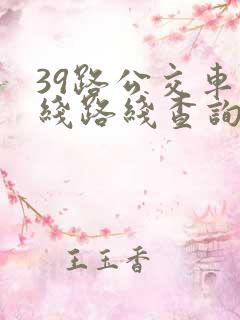 39路公交車
綫路綫查詢
王玉香